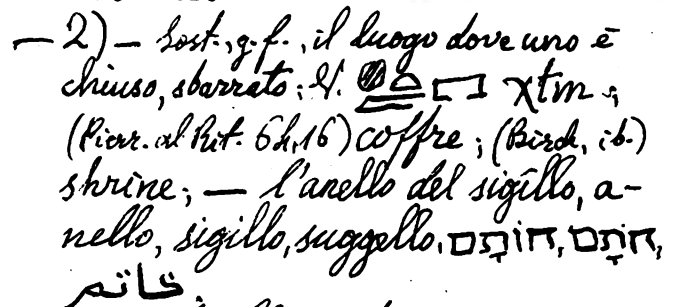 — 2) — Sost., g. f., il luogo dove uno è
chiuso, sbarrato; V. 𓐍𓏏𓐝𓉐 χtm;
(Pierr. al Rit. 64,16) coffre; (Birch, ib.)
shrine; — l'anello del sigillo, a-
nello, sigillo, suggello, חוֹתָם, חֹתָם,
خاتم